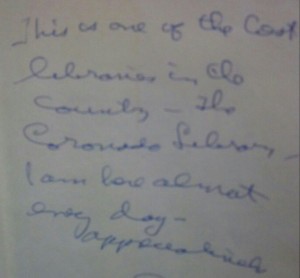 This is one of the
libraries in the
country - the
Coronado Library -
I am here almost
every day -